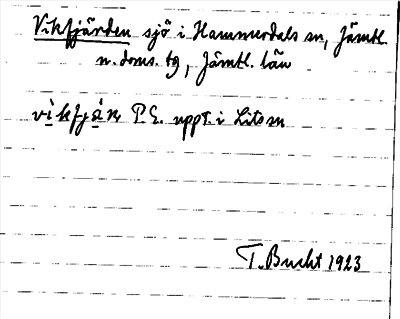 Vikfjärden sjö i Hammerdals sn, Jämtl.
n. doms. tg, Jämtl. län
vikfjän P.E. uppt. i Lits sn
T. Bucht 1923